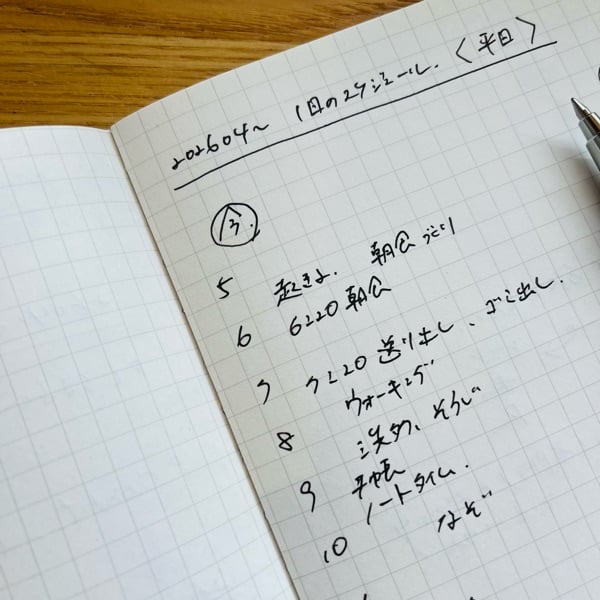 202604〜 1日のスケジュール. 〈平日〉
今.
5 起きよ. 朝会づくり
6 6:20 朝会
7 7:20 送り出し、ゴミ出し.
ウォーキング
8 洗タク、そうじ
9 手帳
ノートタイム.
10 なぞ